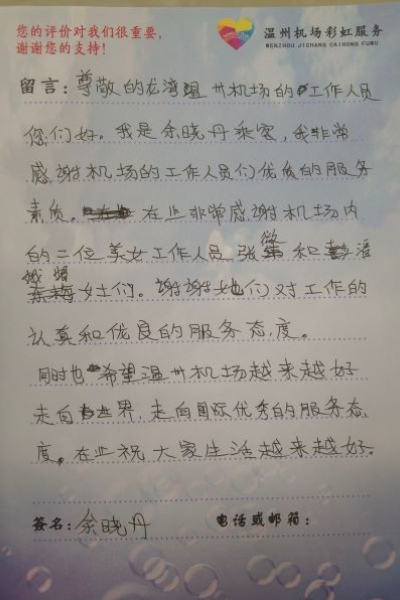 您的评价对我们很重要，
谢谢您的支持！
温州机场彩虹服务
WENZHOU JICHANG CAIHONG FUWU
留言：尊敬的龙湾温州机场的工作人员
您们好。我是余晓丹乘客，我非常
感谢机场的工作人员们优质的服务
素质。在止非常感谢机场内
的二位美女工作人员张和潘
女士们。谢谢她们对工作的
认真和优良的服务态度。
同时也希望温州机场越来越好
走向世界，走向国际优秀的服务态
度。在止祝大家生活越来越好。
签名：余晓丹
电话或邮箱：